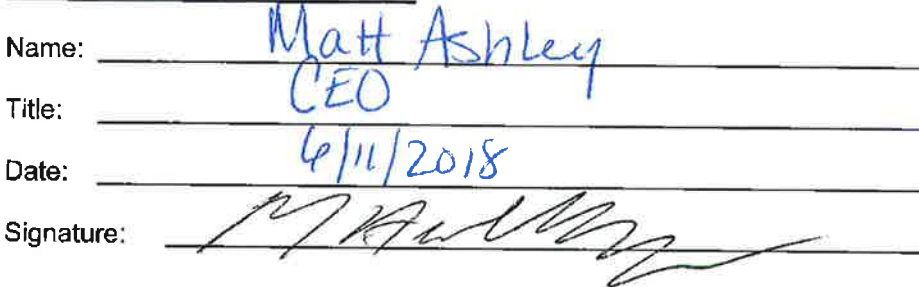 Name: Matt Ashley
Title: CEO
Date: 6/11/2018
Signature: